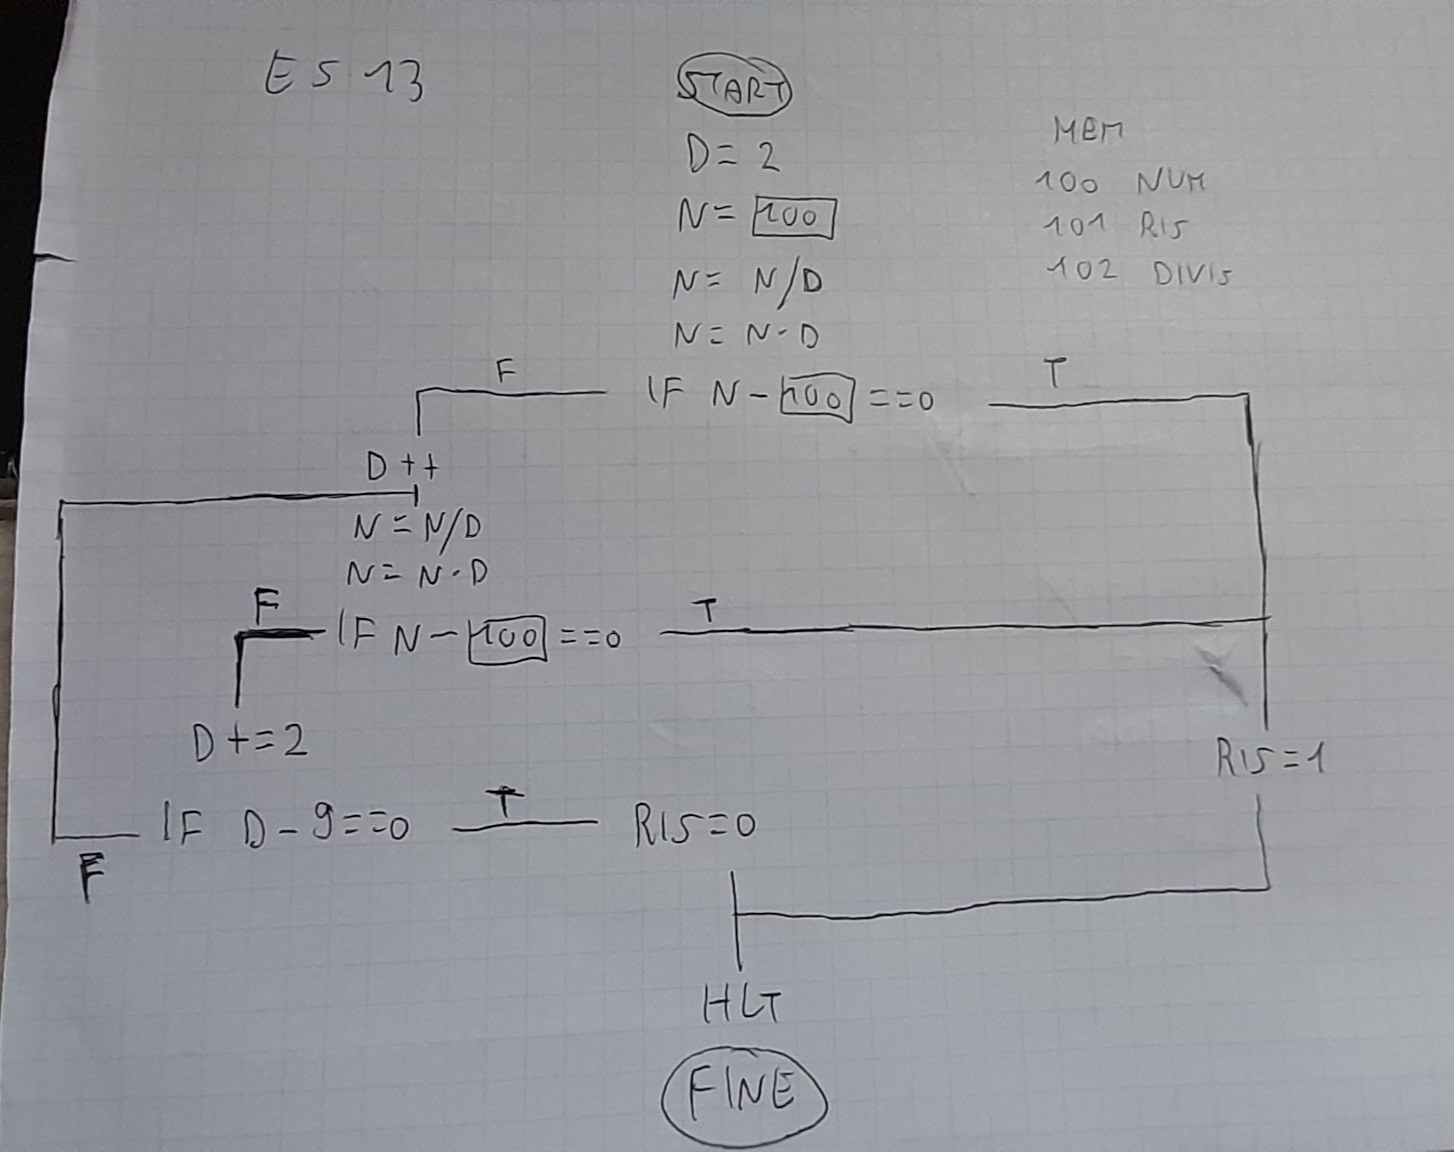 ES 13
START
D = 2
N = 100
N = N/D
N = N·D
MEM
100 NUM
101 RIS
102 DIVIS
F IF N - 100 == 0 T
D++
N = N/D
N = N·D
F IF N - 100 == 0 T
D += 2
RIS = 1
F IF D - 9 == 0 T RIS = 0
HLT
FINE